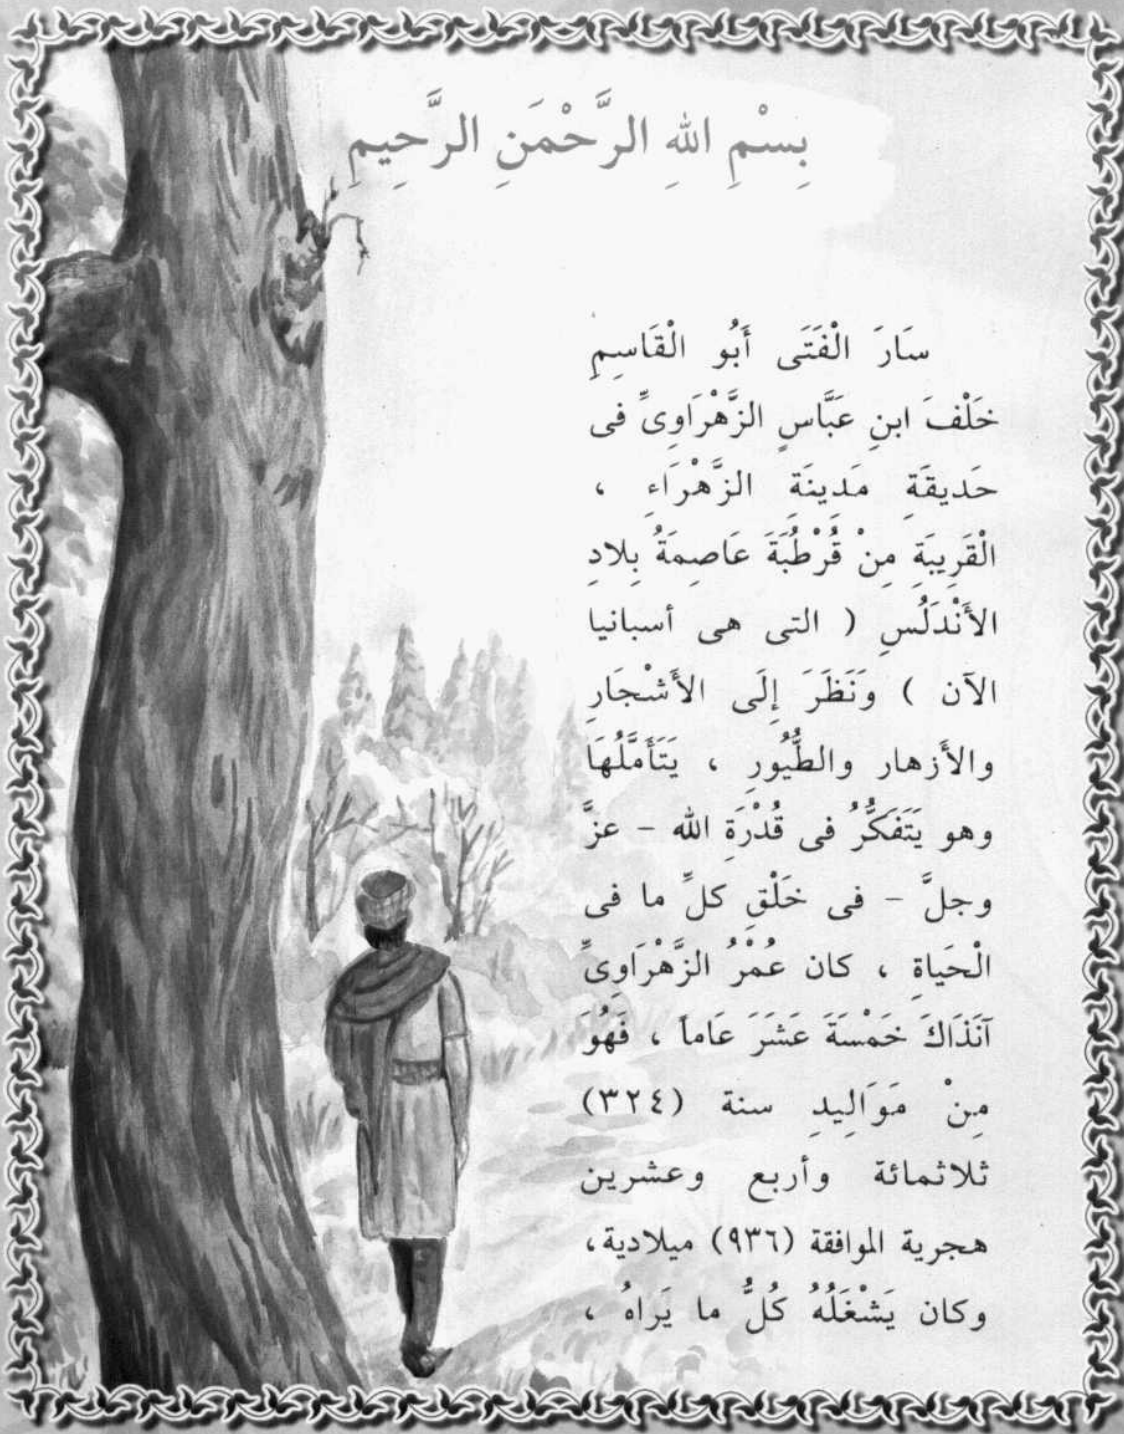 بِسْمِ اللهِ الرَّحْمَنِ الرَّحِيمِ
سَارَ الْفَتَى أَبُو الْقَاسِمِ
خَلْفَ ابنِ عَبَّاسٍ الزَّهْرَاوِىِّ فى
حَديقَةِ مَدِينَةِ الزَّهْرَاءِ ،
الْقَرِيبَةِ مِنْ قُرْطُبَةَ عَاصِمَةُ بِلادِ
الأَنْدَلُسِ ( التى هى أسبانيا
الآن ) وَنَظَرَ إِلَى الأَشْجَارِ
والأَزهار والطُّيُورِ ، يَتَأَمَّلُهَا
وهو يَتَفَكَّرُ فى قُدْرَةِ الله - عزَّ
وجلَّ - فى خَلْقِ كلِّ ما فى
الْحَياةِ ، كان عُمْرُ الزَّهْرَاوِىِّ
آنَذَاكَ خَمْسَةَ عَشَرَ عَاماً ، فَهُوَ
مِنْ مَوَالِيدِ سنة (٣٢٤)
ثلاثمائة وأربع وعشرين
هجرية الموافقة (٩٣٦) ميلادية،
وكان يَشْغَلُهُ كُلُّ ما يَراهُ ،